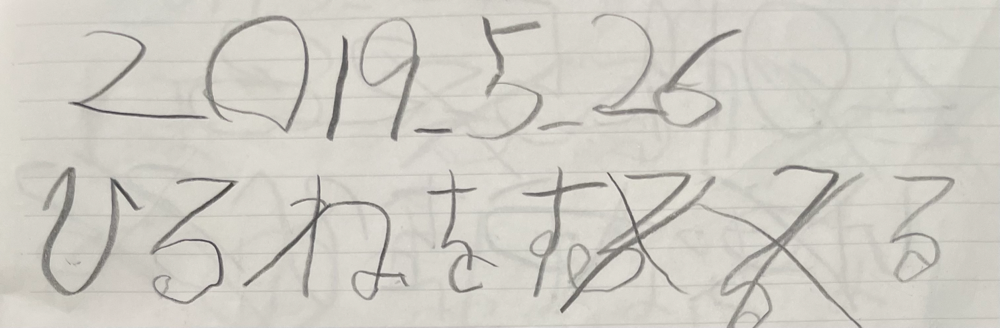 2019_5_26
ひるねをする